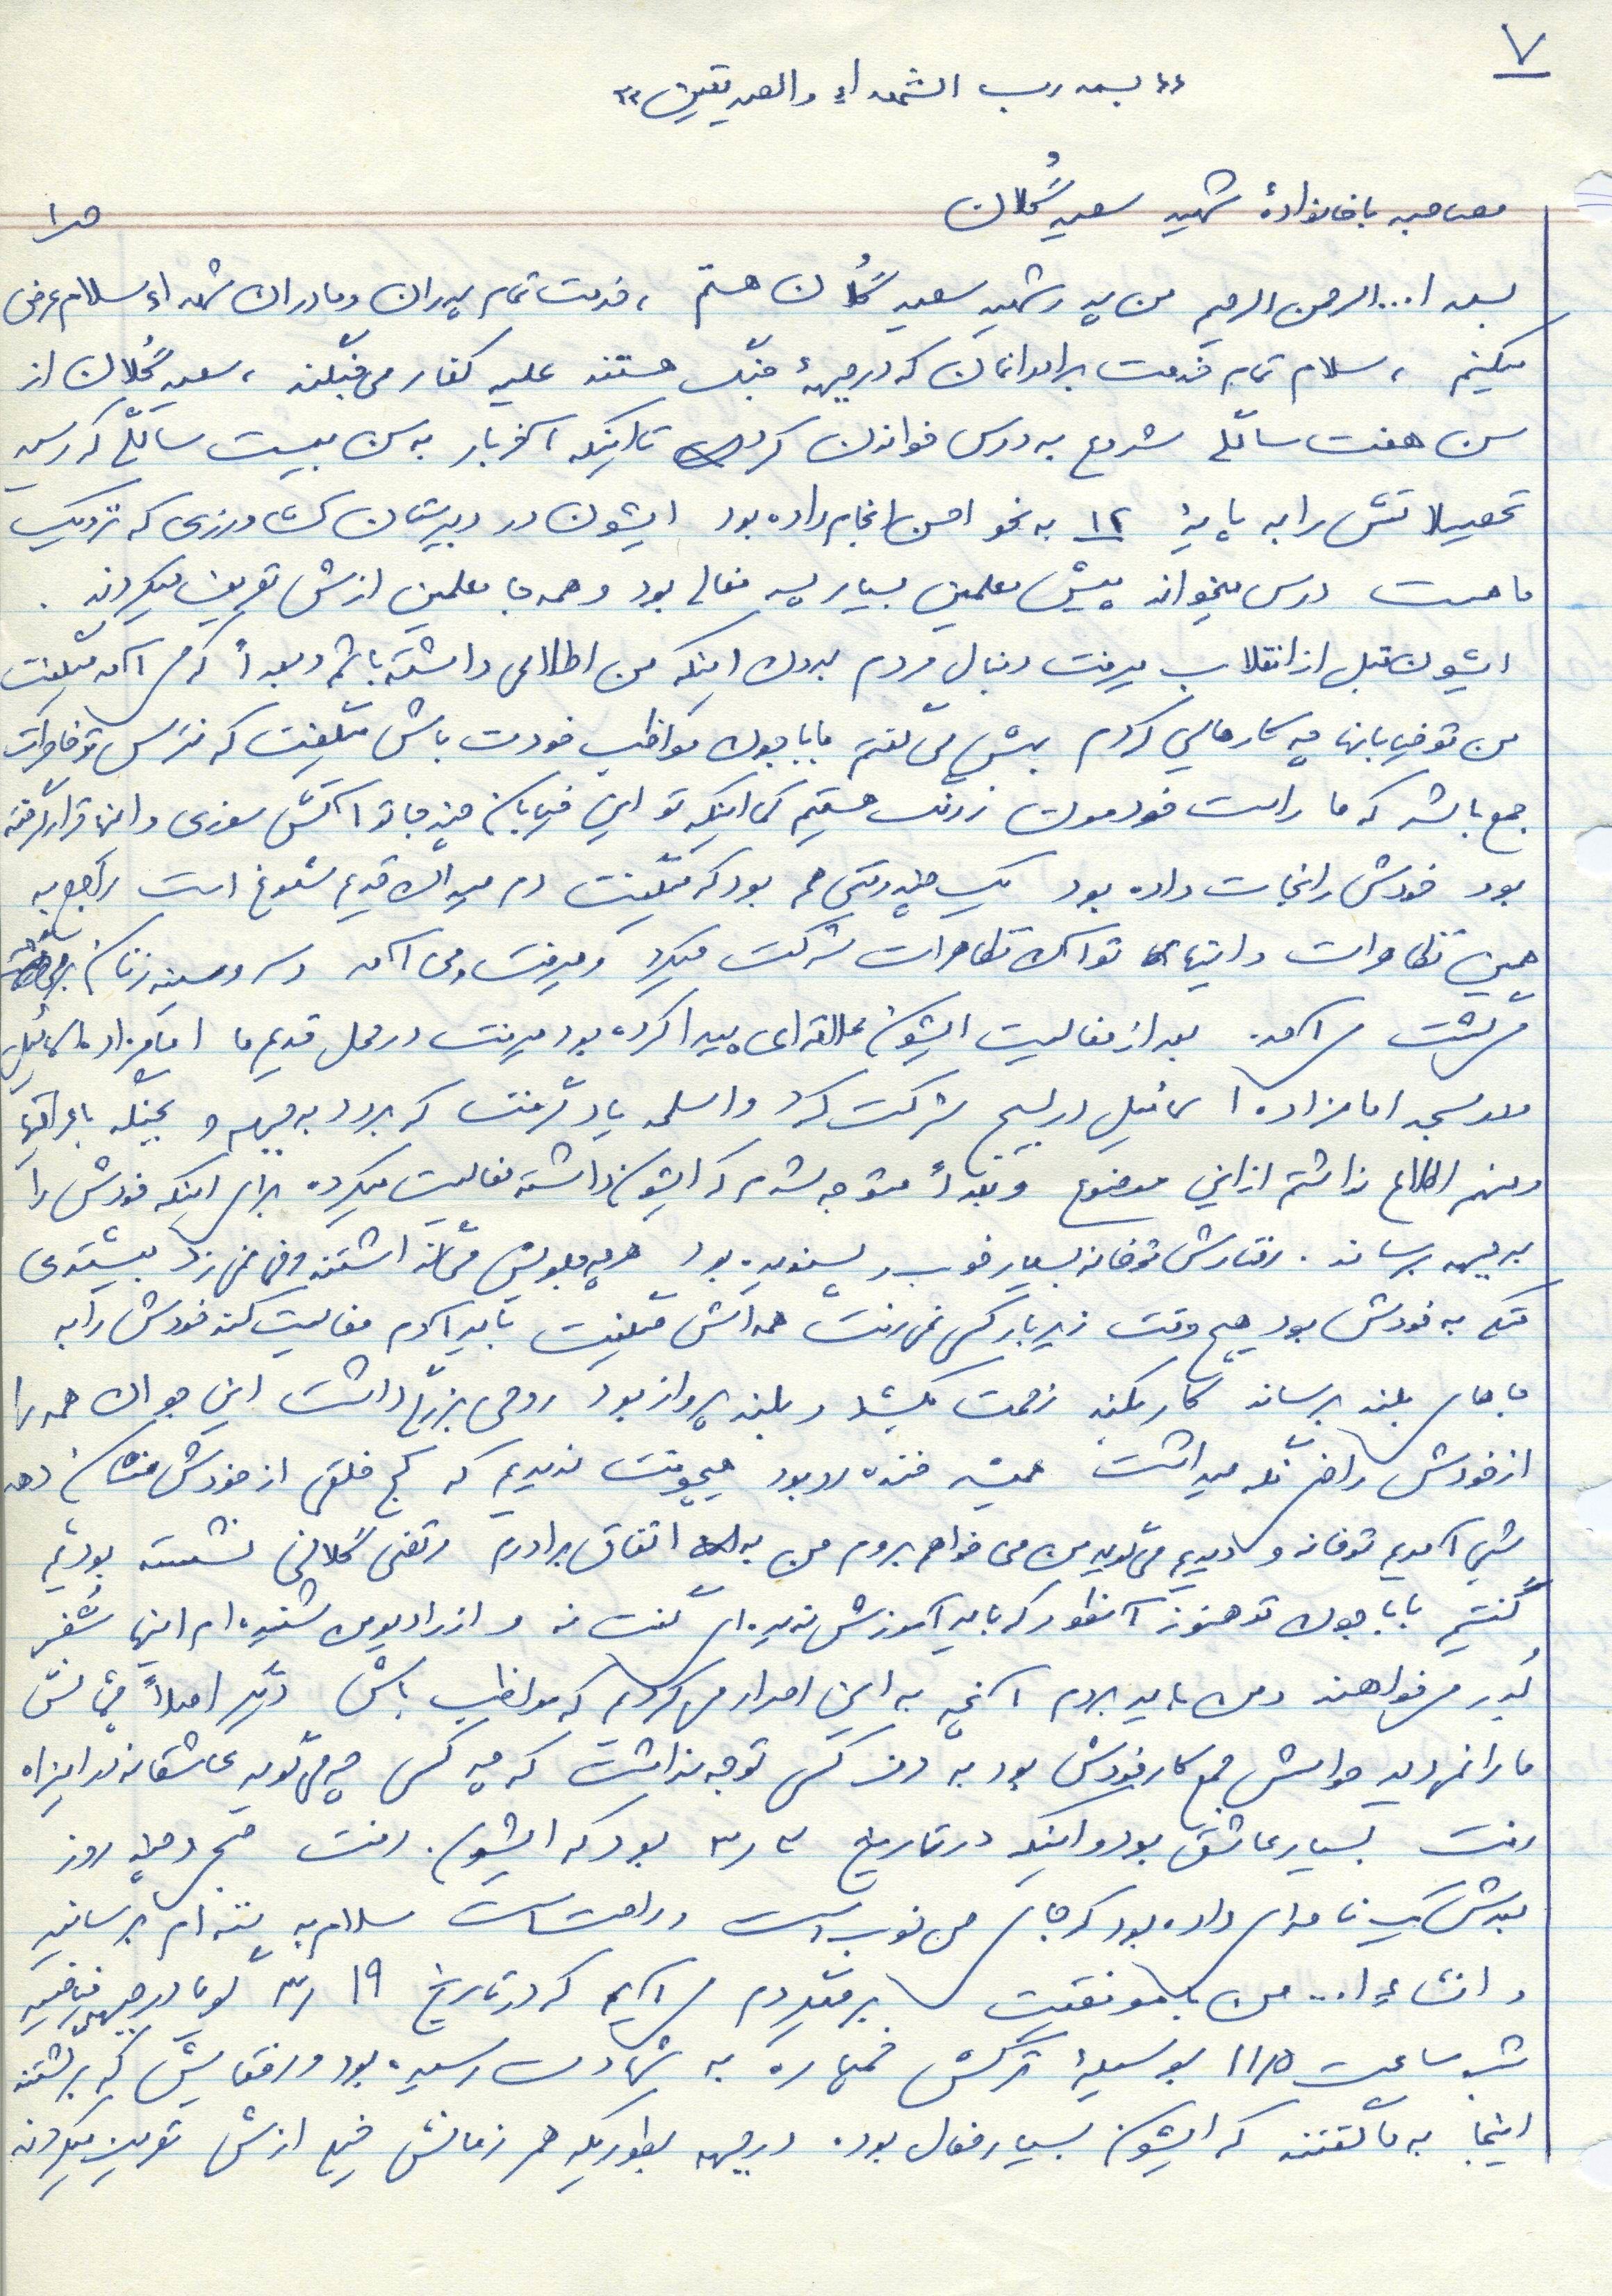 ۷
«بسمه رب الشهداء والصدیقین»
مصاحبه با خانوادهٔ شهید سعید گُلان
ص۱
بسمه ا... الرحمن الرحیم من پدر شهید سعید گُلان هستم ، خدمت تمام پدران و مادران شهداء سلام عرض
میکنم ، سلام تمام خدمت برادرانمان که در جبههٔ جنگ هستند علیه کفار می جنگند ، سعید گُلان از
سن هفت سالگی شروع به درس خواندن کرد تا اینکه آخر بار به سن بیست سالگی که رسید
تحصیلاتش را به پایهٔ ۱۲ به نحو احسن انجام داده بود ایشون در دبیرستان کشاورزی که نزدیک
ماست درس میخواند پیش معلمین بسیار بسیار فعال بود و همه جا معلمین ازش تعریف میکردند .
ایشون قبل از انقلاب میرفت دنبال مردم بدون اینکه من اطلاعی داشته باشم و بعداً که می آمد میگفت
من تو خیابانها چه کارهایی کردم بهش می گفتم بابا جون مواظب خودت باش میگفت که نترس تو خاطرات
جمع باشه که ما راست خودمون زرنگ هستیم کما اینکه تو این خیابان چند جا تو آتش سوزی و اینها قرار گرفته
بود خودش را نجات داده بود یک چند وقتی هم بود که میگفت دم میدان قدیم شلوغ است راجع به
همین تظاهرات و اینها تو آن تظاهرات شرکت میکرد و میرفت و می آمد و سر و سینه زنان
می گشت می آمد. بعد از فعالیت ایشون علاقه ای پیدا کرده بود میرفت در محل قدیم ما امامزاده اسمائیل
در مسجد امامزاده اسمائیل در بسیج شرکت کرد و اسلحه یاد گرفت که برود به جبهه و بجنگه با عراقیها
و منهم اطلاع نداشتم از این موضوع و بعداً متوجه شدم که ایشون داشته فعالیت میکرده برای اینکه خودش را
به جبهه برساند . رفتارش تو خانه بسیار خوب و پسندیده بود هر چه جلویش می گذاشتند حرفی نمی زد بیشتر
متکی به خودش بود هیچ وقت زیر بار کسی نمی رفت همه اش میگفت باید آدم فعالیت کند خودش را به
جاهای بلند برساند کار بکند زحمت بکشد و بلند پرواز بود روحی بزرگی داشت این جوان همه را
از خودش راضی نگه میداشت همیشه خنده رو بود هیچوقت ندیدیم که کج خلقی از خودش نشان دهد
شبی آمدیم تو خانه و دیدیم می گوید من می خواهم بروم من به اتفاق برادرم مرتضی گلانی نشسته بودیم
گفتیم بابا جون تو هنوز آنطور که باید آموزش ندیده ای گفت نه و از رادیو من شنیده ام اینها نفر
می خواهند و من باید بروم آنچه به این اصرار می کردم که مواظب باش دیگر اصلاً
ما را نمی دید حواسش جمع کار خودش بود به حرف کسی توجه نداشت که چه کسی چه می گوید عاشقانه در این راه
رفت بسیار عاشق بود و اینکه در تاریخ ۳ر۳ بود که ایشون رفت پنج و چند روز
بعدش یک نامه ای داده بود که جای من خوب است و راحت است سلام به ننه ام برسانید
و انشاءا... من با موفقیت بر میگردم می آیم که در تاریخ ۱۹ر۳ گویا در جبهه فیاضیه
شب ساعت ۱۱/۵ بوسیلهٔ ترکش خمپاره به شهادت رسیده بود و رفقایش که برگشتند
اینجا به ما گفتند که ایشون بسیار فعال بوده در جبهه بطوریکه همرزمانش خیلی ازش تعریف میکردند